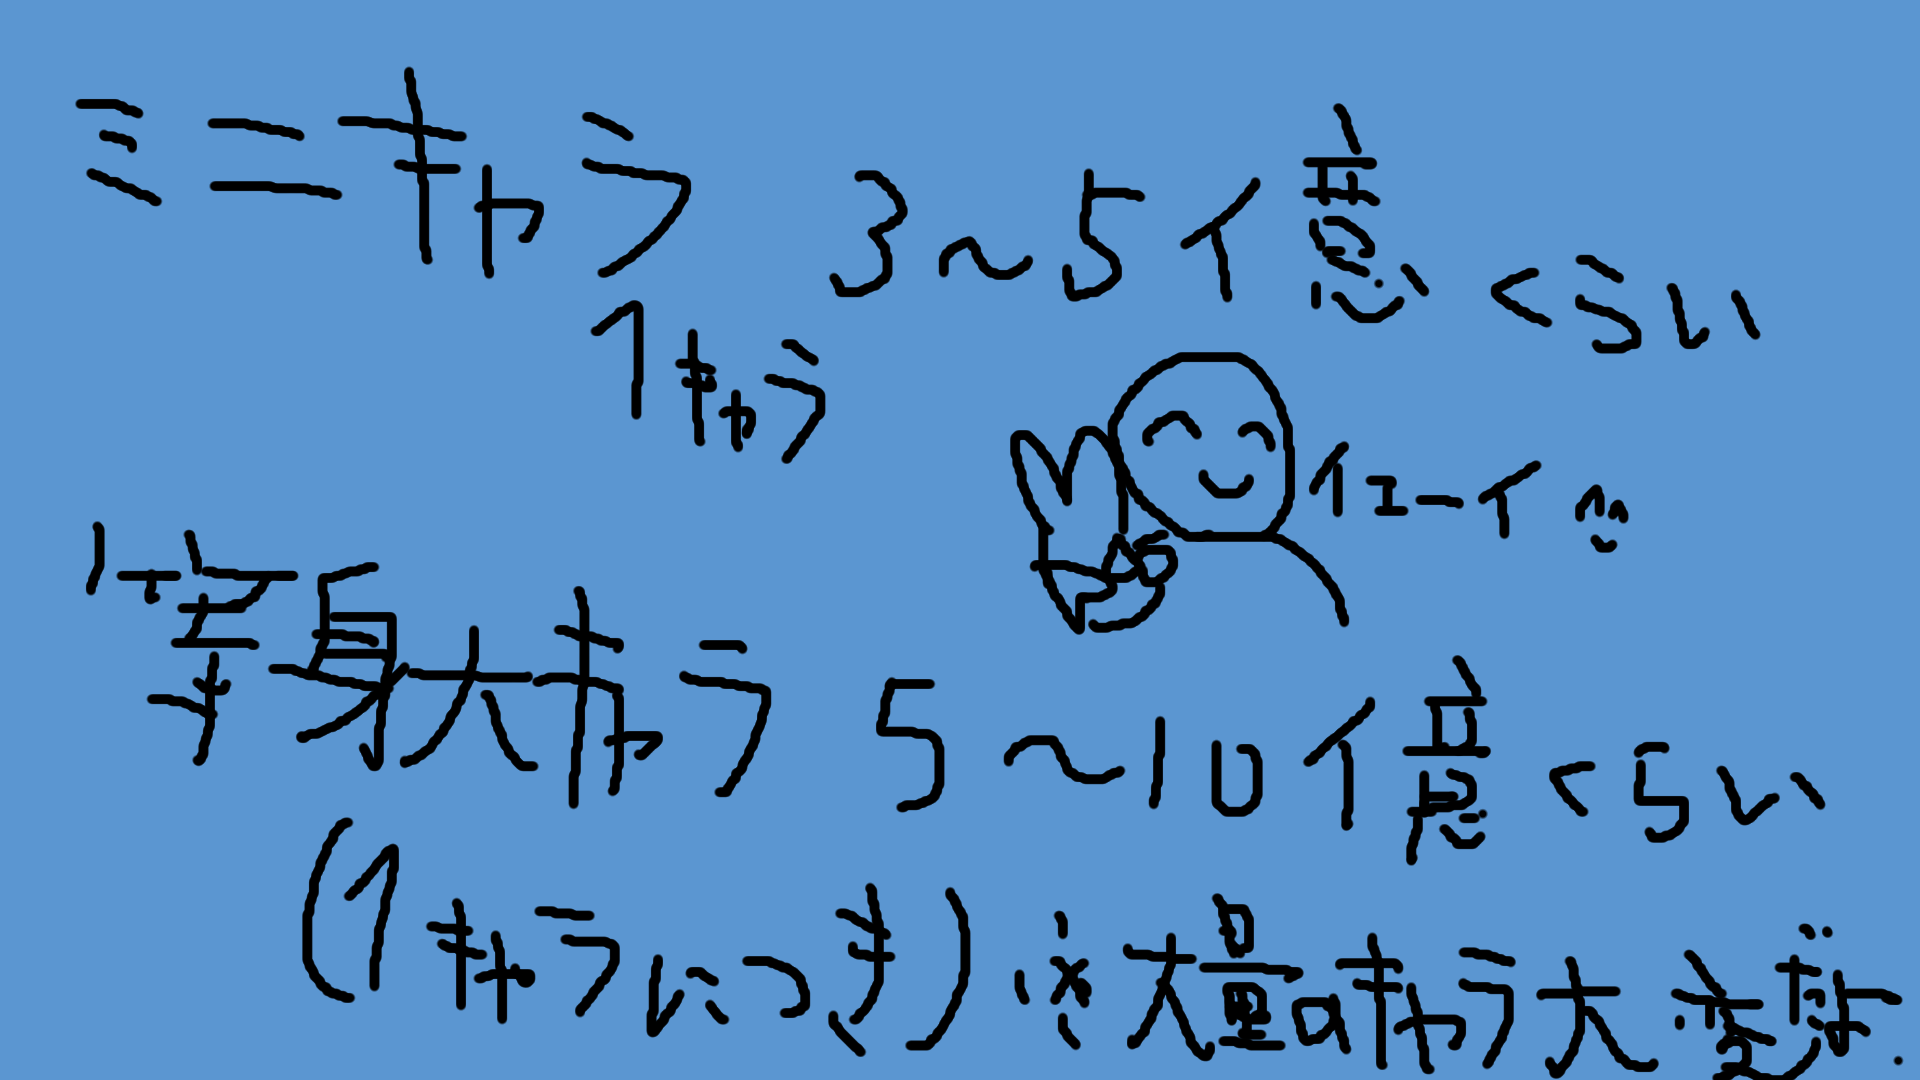 ミニキャラ 3～5億くらい
1キャラ
イエーイ
等身大キャラ 5～10億くらい
(1キャラにつき) ※大量のキャラ大